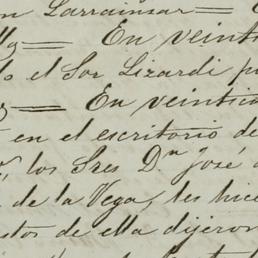 n Larrainzar =
lly = En veinti
lo el Sor Lizardi p
= En veintic
en el escritorio de
los Sres Dn José
de la Vega, les hice
stos de ella dijeron